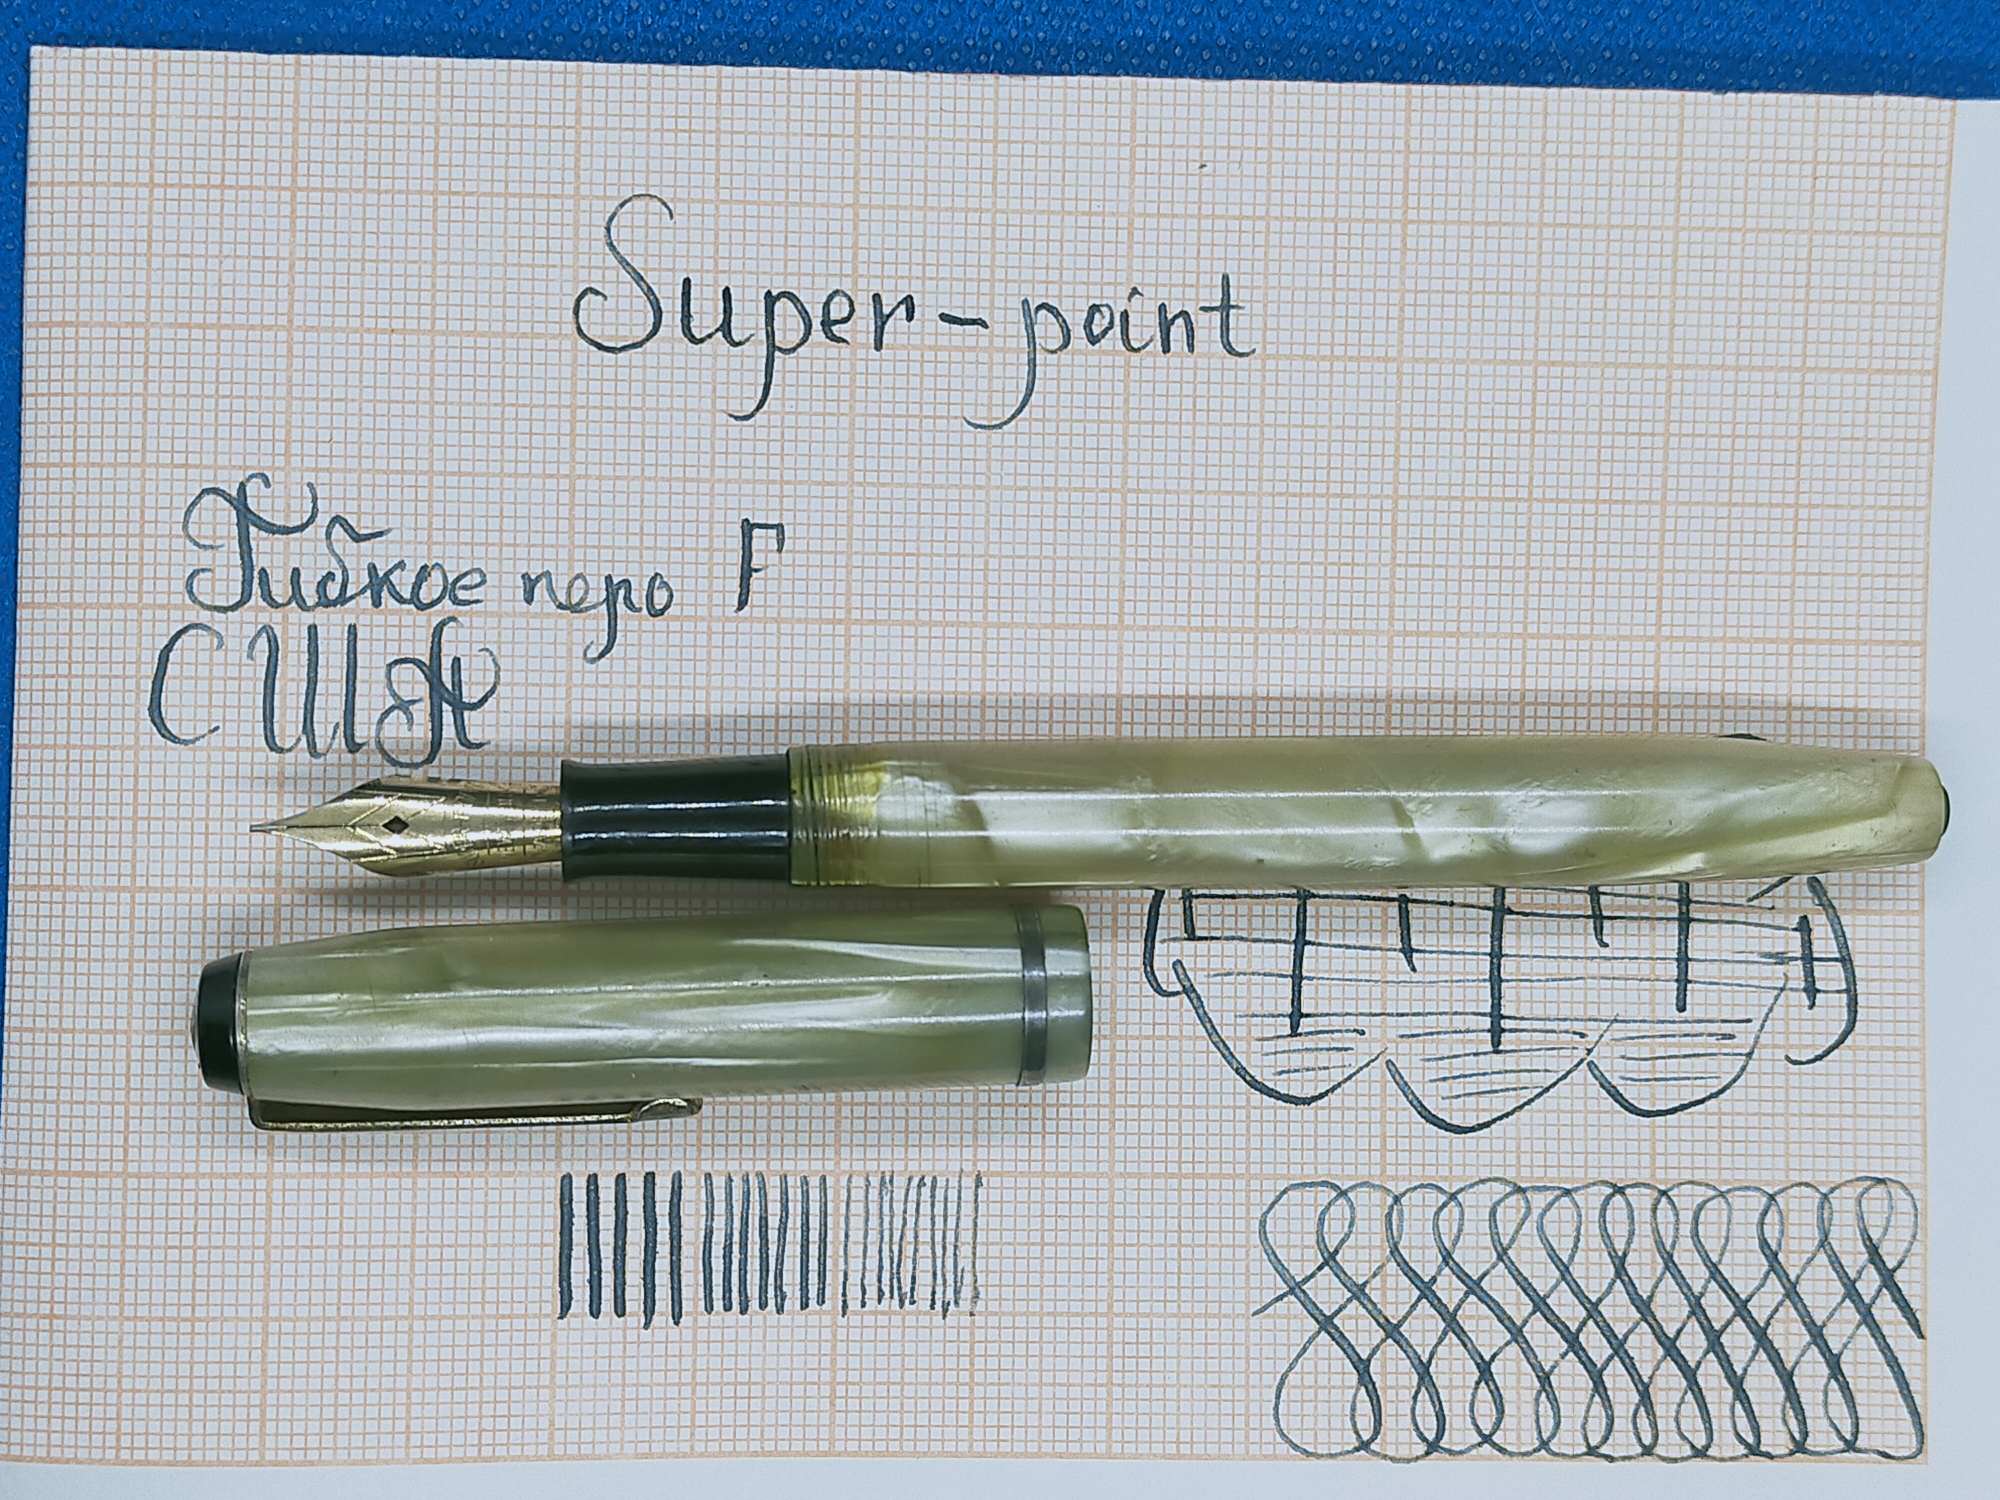 Super-point
Гибкое перо F
США